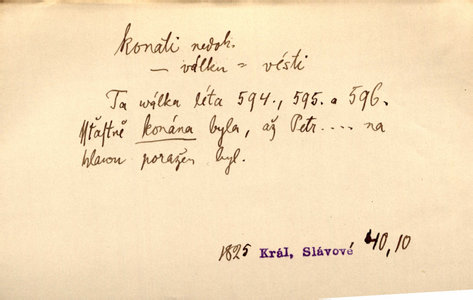 konati nedok.
— válku = vésti
Ta wálka léta 594., 595. a 596.
šťastně konána byla, až Petr.... na
hlawu poražen byl.
1825 Král, Slávové 40,10